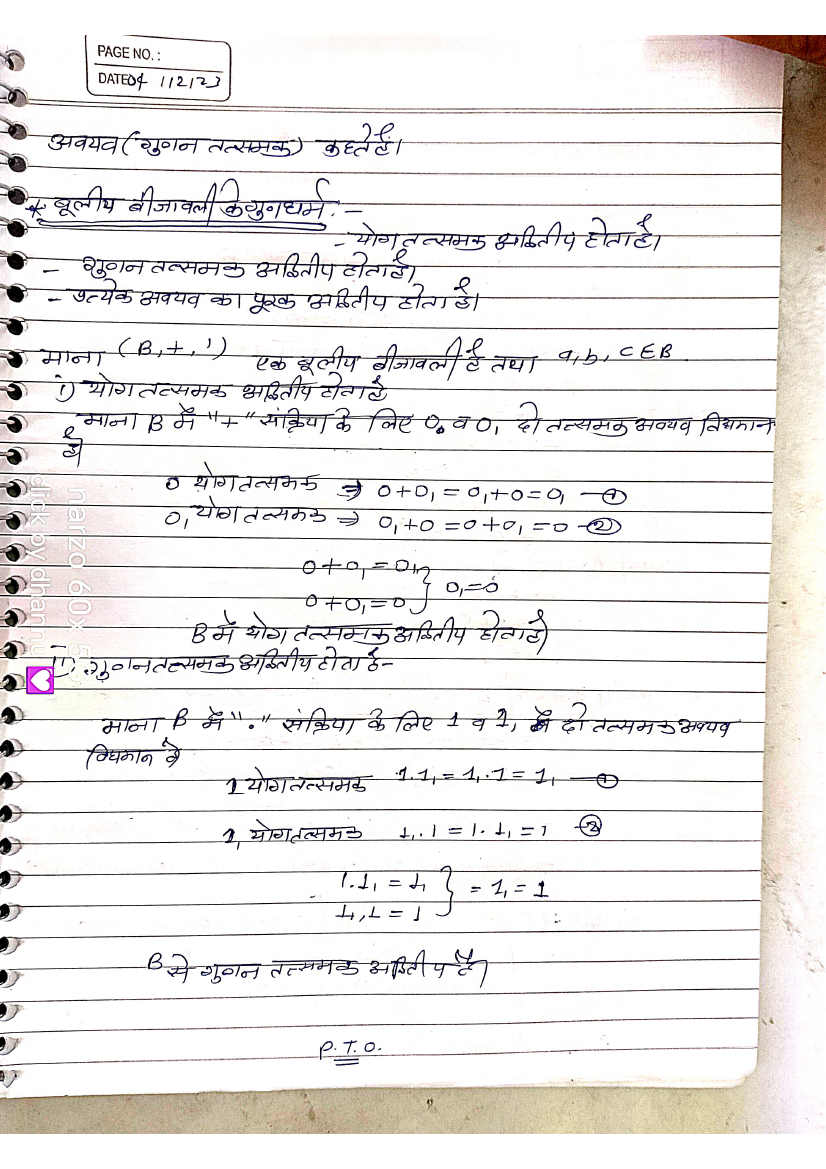 PAGE NO.:
DATE 04 112123
अवयव (गुणन तत्समक) कहते हैं।
* बूलीय बीजावली के गुणधर्म :-
- योग तत्समक अद्वितीय होता है।
- गुणन तत्समक अद्वितीय होता है।
- प्रत्येक अवयव का पूरक अद्वितीय होता है।
माना (B, +, ') एक बूलीय बीजावली है तथा a, b, c ∈ B.
i) योग तत्समक अद्वितीय होता है
माना B में "+" संक्रिया के लिए 0 व 0₁ दो तत्समक अवयव विधमान
है
0 योग तत्समक ⇒ 0+0₁ = 0₁+0 = 0₁ —①
0₁ योग तत्समक ⇒ 0₁+0 = 0+0₁ = 0 —②
0+0₁ = 0₁ } 0₁=0
0+0₁ = 0
B में योग तत्समक अद्वितीय होता है
ii) गुणन तत्समक अद्वितीय होता है-
माना B में "." संक्रिया के लिए 1 व 1₁ में दो तत्समक अवयव
विधमान है
1 योग तत्समक 1.1₁ = 1₁.1 = 1₁ —①
1₁ योग तत्समक 1₁.1 = 1.1₁ = 1 —②
1.1₁ = 1₁ } = 1₁ = 1
1₁.1 = 1
B से गुणन तत्समक अद्वितीय है
P.T.O.
narzo 60x 5
click by dhannu